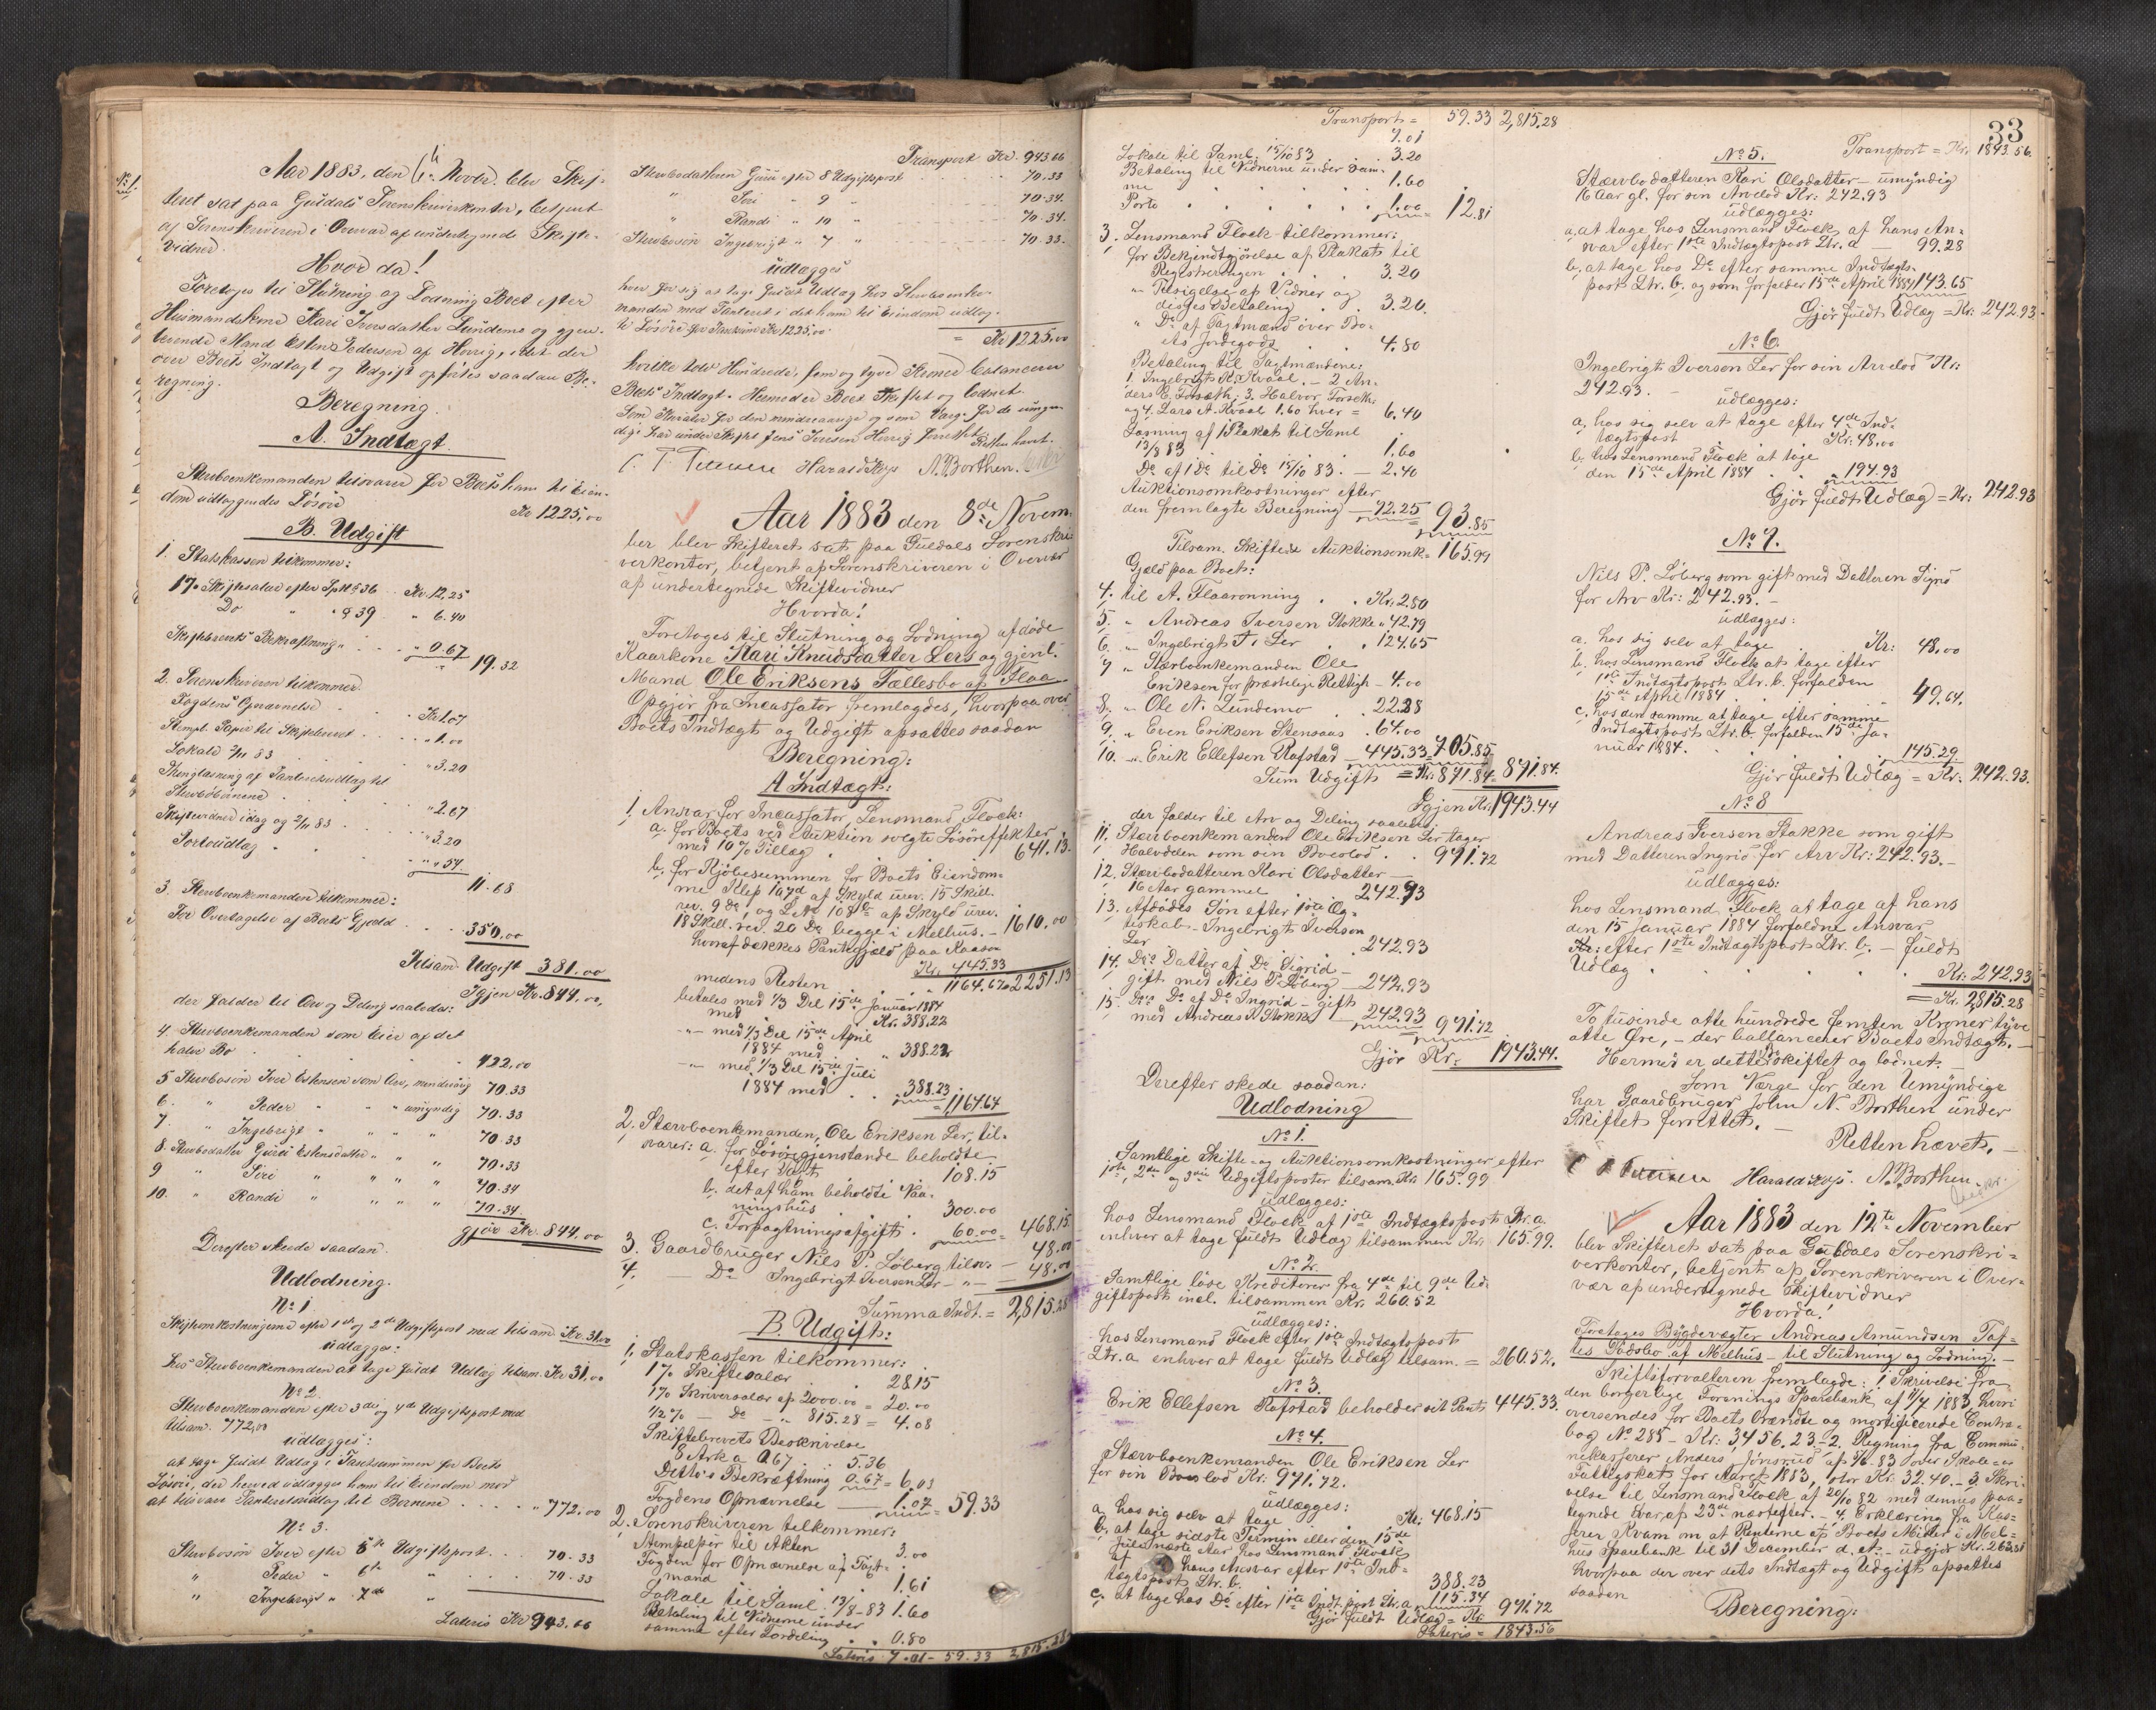 Aar 1883, den 6te Novbr. blev Skif-
teret sat paa Guldals Sorenskriverkontor, betjent
af Sorenskriveren i Overvær af undertegnede Skifte-
vidner.
Hvor da!
Foretoges til Slutning og Lodning Boet efter
Huusmandskone Kari Iversdatter Lundemo og gjen-
levende Mand Esten Pedersen af Horrig, idet der
over Boets Indtægt og Udgift opførtes saadan Be-
regning.
Beregning.
A. Indtægt.
Stervboenkemanden tilsvarer for Boets ham til Eien-
dom udlæggendes Løsøre Kr 1225,00
B. Udgift
1. Statskassen tilkommer:
1% Skiftesalær efter Spl § 36 Kr. 12.25
Do " § 39 " 6.40
Skiftebrevets Bekræftning " 0.67
" 19.32
2. Sorenskriveren tilkommer
Fogdens Opnævnelse Kr 1.07
Stempl. Papir til Skiftebrevet " 1.00
Lokale 2/11 83 " 3.20
Thinglæsning af Panteretsudlæg til
Stervbobørnene " 2.67
Skiftevidner idag og 2/11 83 " 3.20
Portoudlæg " " 54
11.68
3. Stervboenkemanden tilkommer:
For Overtagelse af Boets Gjæld 350,00
Tilsam. Udgift 381.00
Igjen Kr. 844.00,
der falder til Arv og Deling saaledes:
4. Stervboenkemanden som Eier af det
halve Bo 422,00
5 Stervbosøn Iver Estensen som Arv, mindreaarig 70.33
6. " Peder " " " umyndig 70.33
7. " Ingebrigt " " " " 70.33
8. Stervbodatter Guru Estensdatter " " " 70.33
9 " Siri " " " " 70.34
10. " Randi " " " " 70.34
gjør Kr. 844.00
Derefter skede saadan
Udlodning.
No 1
Skifteomkostningerne efter 1ste og 2den Udgiftspost med tilsam. Kr. 31.00
udlægges:
hos Stervboenkemanden at tage fuldt Udlæg tilsam. Kr 31,00
No 2.
Stervboenkemanden efter 3die og 4de Udgiftspost med
tilsam. 772,00
udlægges:
at tage fuldt Udlæg i Taxtsummen for Boets
Løsøre, der herved udlægges ham til Eiendom mod
at tilsvare Panteretsudlæg til Børnene " 772.00
No 3.
Stervbosøn Iver efter 5te Udgiftspost 70.33
" Peder " 6te " 70.33
" Ingebrigt " 7de "
Lateris Kr 943.66
Transport Kr. 943.66
Stervbodatteren Guru efter 8 Udgiftspost 70.33
" Siri " 9 " 70.34.
" Randi " 10 " 70.34.
Stervbosøn Ingebrigt " 7 " 70.33.
udlægges
hver for sig at tage fuldt Udlæg hos Stervboenke-
manden med Panteret i det ham til Eiendom udlag-
te Løsøre for Taxtsum Kr 1225.00
= Kr 1225.00
hvilke tolv Hundrede, fem og tyve Kroner balancerer
Boets Indtægt. Hermed er Boet Skiftet og lodnet.
Som Kurator for den mindreaarige og som Værge for de umyn-
dige har under Skiftet Jens Iversen Horrig forrettet.
Retten hævet.
Harald Krys N. Borthen.
Aar 1883 den 8de Novem-
ber blev Skifteret sat paa Guldals Sorenskri-
verkontor, betjent af Sorenskriveren i Overvær
af undertegnede Skiftevidner
Hvorda!
Foretoges til Slutning og Lodning afdøde
Kaarkone Kari Knudsdatter Lers og gjenl.
Mand Ole Eriksens Fællesbo af Flaa.
Opgjør fra Incassator fremlagdes, hvorpaa over
Boets Indtægt og Udgift opsattes saadan
Beregning:
A Indtægt:
1. Ansvar for Incassator, Lensmand Flock:
a. for Boets ved Auktion solgte Løsøreffekter
med 10% Tillæg 641.13.
b. for Kjøbesummen for Boets Eiendom-
me Klep 107d af Skyld urev. 15 Skill.
rev. 9 do, og L.No 108b af Skyld urev.
18 Skill. rev. 20 Do begge i Melhus. - 1610.00
hvoraf dækkes Pantegjæld paa Kaasen
Kr. 445.33
medens Resten 1164.67 2251.13
betales med 1/3 Del 15de Januar 1884
med Kr. 388.22
-"- med 1/3 Del 15de April
1884 med " 388.22
-"- med 1/3 Del 15de Juli
1884 med 388.23
= 1164.67
2. Stærvboenkemanden, Ole Eriksen Ler, til-
svarer: a. for Løsøregjenstande beholdte
efter Taxt 108.15
b. det af ham beholdte Vaa-
ningshus 300.00
c. Forpagtningsafgift 60.00 = 468.15
3. Gaardbruger Nils P. Løberg tilsv. - 48.00
4. - Do Ingebrigt Iversen Ler - " - 48.00
Summa Indt. = 2,815.28
B. Udgift:
1. Statskassen tilkommer:
1% Skiftesalær 28.15
1% Skriversalær af 2000.00 = 20.00
1/2% - Do - " 815.28 = 4.08
Skiftebrevets Beskrivelse
8 Ark a 0.67 5.36
Ditto's Bekræftning 0.67 = 6.03
Fogdens Opnævnelse - 1.07 = 59.33
2. Sorenskriveren tilkommer:
Stempelpir til Akten 3.00
Fogden for Opnævnelse af Taxt-
mænd 1.61
Lokale til Saml. 13/8-83 1.60
Betaling til Vidnerne under
samme efter Fordeling 0.80
Lateris 7.01 - 59.33 2,815.28
Transport = 59.33 2,815.28
7.01
Lokale til Saml. 15/10 83 3.20
Betaling til Vidnerne under sam-
me 1.60
Porto 1.00 = 12.81
3. Lensmand Flock tilkommer:
for Bekjendtgjørelse af Plakat til
Registreringen 3.20
" Tilsigelse af Vidner og
disses Betaling 3.20
" Do af Taxtmænd over Bo-
ets Jordegods 4.80
Betaling til Taxtmændene:
1. Ingebrigt K. Kvaal. - 2 An-
ders E. Forsæth; 3. Halvor Forseth;
og 4. Lars A. Kvaal 1.60 hver = 6.40
Læsning af 1 Plakat til Saml
13/8 83 1.60
Do af 1 Do til Do 15/10 83. - 2.40
Auktionsomkostninger efter
den fremlagte Beregning - 72.25 = 93.85
Tilsam. Skifte & Auktionsomk. = 165.99
Gjæld paa Boet:
4. til A. Flaarønning Kr. 2.80
5. " Andreas Iversen Stokke " 42.79
6. " Ingebrigt I. Ler 124.65
7 " Stærboenkemanden Ole
Eriksen for præstelige Rettigh - 4.00
8. " Ole N. Lundemo 22.28
9. " Even Eriksen Stensaas 64.00
10. " Erik Ellefsen Rofstad - 445.33 = 705.85
Sum Udgift = Kr. 871.84 = 871.84.
Igjen Kr. 1943.44
der falder til Arv og Deling saaledes:
11. Stærboenkemanden Ole Eriksen Ler tager
Halvdelen som sin Boeslod 971.72
12. Stærbodatteren Kari Olsdatter -
16 Aar gammel 242.93
13. Afdødes Søn efter 1ste Æg-
teskab - Ingebrigt Iversen
Ler 242.93
14. Do's Datter af Do Sigrid -
gift med Nils P. Løberg - 242.93
15. Do's Do af Do Ingrid - gift
med Andreas I. Stokke - 242.93 = 971.72
Gjør Kr. 1943.44.
Derefter skede saadan:
Udlodning
No 1.
Samtlige Skifte- og Auktionsomkostninger efter
1ste, 2de og 3die Udgiftsposter tilsam. Kr. 165.99
udlægges:
hos Lensmand Flock af 1ste Indtægtspost Ltr. a.
enhver at tage fuldt Udlæg tilsammen Kr. 165.99.
No 2.
Samtlige løse Kreditorer fra 4de til 9de Ud-
giftspost incl. tilsammen Kr. 260.52
udlægges:
hos Lensmand Flock efter 1ste Indtægtspost
Ltr. a enhver at tage fuldt Udlæg tilsam. = 260.52.
No 3.
Erik Ellefsen Rofstad beholder sit Pant 445.33.
No 4.
Stærvboenkemanden Ole Eriksen Ler
for sin Boeslod Kr. 971.72.
udlægges:
a. hos sig selv at tage Kr. 468.15
b. at tage sidste Termin eller den 15de
Juli næste Aar hos Lensmand Flock
af hans Ansvar efter 1ste Ind-
tægtspost Ltr. b. 388.23
c. at tage hos Do efter 1ste Indt. post Ltr. a. 115.34
Gjør fuldt Udlæg = Kr. 971.72
Lateris = 1843.56
33
Transport = Kr. 1843.56.
No 5.
Stærvbodatteren Kari Olsdatter - umyndig
16 Aar gl. for sin Arvelod Kr: 242.93
udlægges:
a. at tage hos Lensmand Flock af hans An-
svar efter 1ste Indtægtspost Ltr. a - 99.28
b. at tage hos Do efter samme Indtægts-
post Ltr. b. og som forfalder 15de April 1884 143.65
Gjør fuldt Udlæg = Kr: 242.93
No 6.
Ingebrigt Iversen Ler for sin Arvelod Kr:
242.93. -
udlægges:
a. hos sig selv at tage efter 4de Ind-
tægtspost Kr: 48.00
b. hos Lensmand Flock at tage
den 15de April 1884 " 194.93
Gjør fuldt Udlæg = Kr: 242.93
No 7.
Nils P. Løberg som gift med Datteren Sigrid
for Arv Kr: 242.93. -
udlægges:
a. hos sig selv at tage Kr: 48.00
b. hos Lensmand Flock at tage efter
1ste Indtægtspost Ltr. b. forfalden
15de April 1884 49.64.
c. hos den samme at tage efter samme
Indtægtspost Ltr. b. forfalden 15de Ja-
nuar 1884. 145.29
Gjør fuldt Udlæg = Kr. 242.93.
No 8
Andreas Iversen Stokke som gift
med Datteren Ingrid for Arv Kr: 242.93. -
udlægges:
hos Lensmand Flock at tage af hans
den 15 Januar 1884 forfaldne Ansvar
efter 1ste Indtægtspost Ltr. b. - fuldt
Udlæg Kr: 242.93
= Kr. 2,815.28
To tusinde otte hundrede femten Kroner tyve
otte Øre, - der ballancerer Boets Indtægt. -
Hermed er dette Bo skiftet og lodnet. -
Som Værge for den Umyndige
har Gaardbruger John N. Borthen under
Skiftet forrettet. -
Retten hævet. -
Harald Krys. N. Borthen.
Aar 1883 den 12te November
blev Skifteret sat paa Guldals Sorenskri-
verkontor, betjent af Sorenskriveren i Over-
vær af undertegnede Skiftevidner
Hvorda!
Foretoges Bygdevægter Andreas Amundsen Tof-
tes Dødsbo af Melhus - til Slutning og Lodning. -
Skifteforvalteren fremlagde: 1 Skrivelse fra
den borgerlige Forenings Sparebank af 11/7 1883, hvori
oversendes for Boets brændte og mortificerede Contra-
bog No 285 - Kr: 3,456.23 - 2. Regning fra Commu-
nekasserer Anders Jønsrud af 1/6 83 over Skole- og
Fattigskat for Aaret 1883, stor Kr: 32.40. - 3. Skri-
velse til Lensmand Flock af 20/10 82 med dennes paa-
tegnede Svar af 23de næstefter. - 4. Erklæring fra Kas-
serer Kvam om at Renterne af Boets Midler i Mel-
hus Sparebank til 31 December d. A. - udgjør Kr. 263.31
hvorpaa der over dets Indtægt og Udgift opsattes
saadan
Beregning: